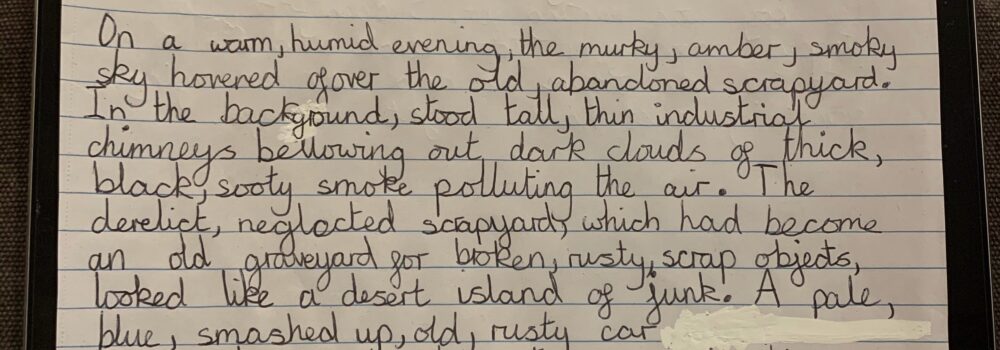 On a warm, humid evening, the murky, amber, smoky
sky hovered ofover the old, abandoned scrapyard.
In the background, stood tall, thin industrial
chimneys bellowing out dark clouds of thick,
black, sooty smoke polluting the air. The
derelict, neglected scrapyard, which had become
an old graveyard for broken, rusty, scrap objects,
looked like a desert island of junk. A pale,
blue, smashed up, old, rusty car